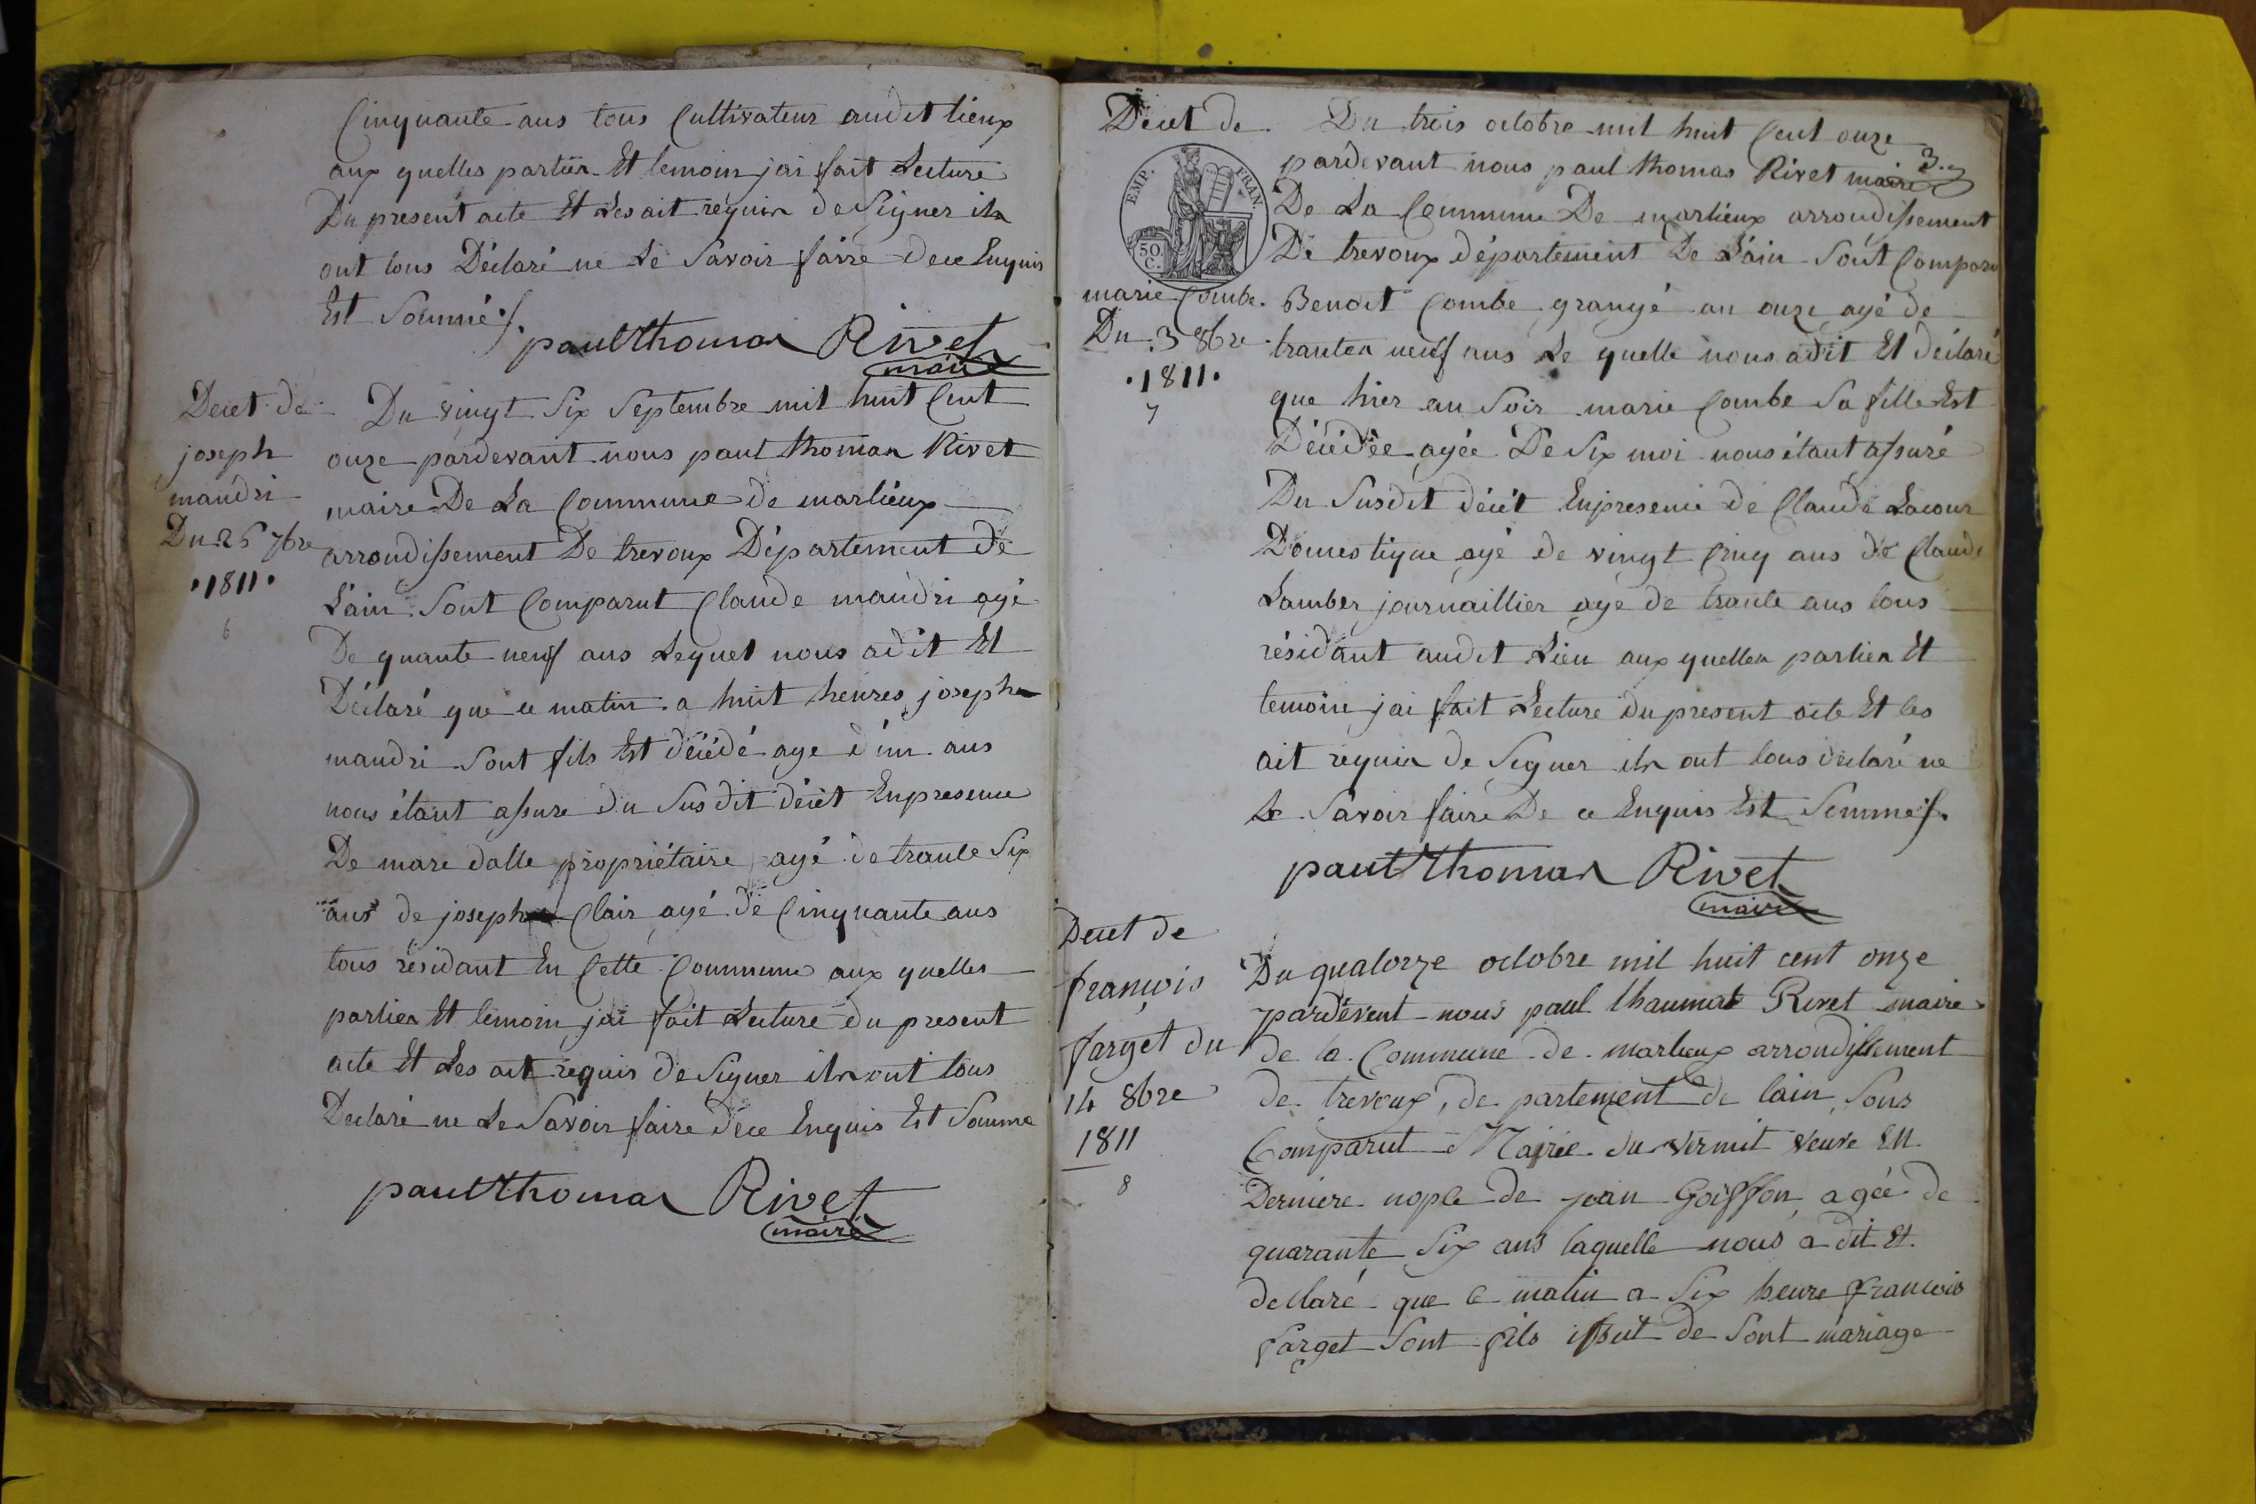 Cinquante ans tous Cultivateur audit lieux
aux quelles partiea Et temoin jai fait Lecture
Du present acte Et Les ait requia de Signer ila
ont tous Déclaré ne Le Savoir faire dece Enquis
Est Sommé /.
paul thomas Rivet
maire
Decet de
joseph
maudri
Du 26 7bre
1811
6
Du vingt Six Septembre mil huit Cent
onze pardevant nous paul thomas Rivet
maire De La Commune de marlieux
arrondissement De trevoux Département de
L'ain Sont Comparut Claude maudri agé
De quante neuf ans Lequel nous adit Et
Déclaré que ce matin a huit heures joseph
maudri Sont fils Est décédé age d'un ans
nous étant assure du Susdit décét Enpresence
De marc dalle propriétaire agé de trante Six
ans de joseph Clair agé de Cinquante ans
tous résidant En Cette Commune aux quelles
partiea Et temoin jai fait Lecture du present
acte Et Les ait requis de Signer ila ont tous
Declaré ne Le Savoir faire dece Enquis Et Somme
paul thomas Rivet
maire
Décet de
EMP. FRAN.
50 C.
marie Combe
Du 3 8bre
1811
7
3
Du trois octobre mil huit Cent onze
pardevant nous paul thomas Rivet maire
De La Commune De marlieux arrondissement
De trevoux département De L'ain Sont Comparu
Benoit Combe grangé au onze agé de
trantea neuf ans Le quelle nous adit Et déclaré
que hier au Soir marie Combe Sa fille Est
Décédée agée De Six moi nous étant assuré
Du Susdit décét Enpresence de Claude Lacour
Domestique agé de vingt Cinq ans de Claude
Lamber journaillier age de trante ans tous
résidant audit Lieu aux quellea partiea Et
temoin jai fait Lecture du present acte Et les
ait requia de Signer ila ont tous déclaré ne
Le Savoir faire De ce Enquis Est Sommé /.
paul thomas Rivet
maire
Decet de
françois
farget du
14 8bre
1811
8
Du quatorze octobre mil huit cent onze
pardévent nous paul thaumat Rivet maire
de la Commune de marlieux arrondissement
de trevoux, de partement de lain Sons
Comparut Mairie du vermit veuve En
Derniere nople de jean Goiffon agée de
quarante Six ans laquelle nous a dit Et
dellaré que ce matin a Six heure francois
farget Sont fils issuit de Sont mariage